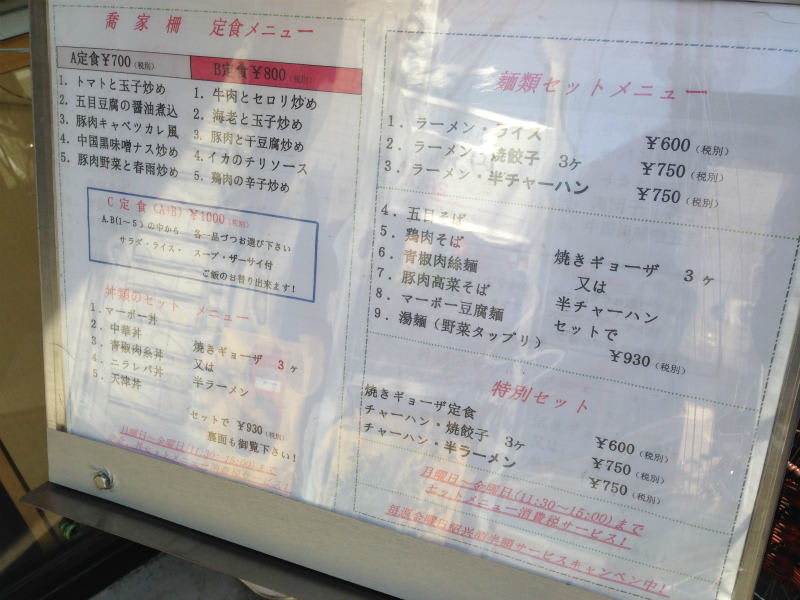 喬家柵 定食メニュー
A定食￥700（税別）
1. トマトと玉子炒め
2. 五目豆腐の醤油煮込
3. 豚肉キャベツカレ風
4. 中国黒味噌ナス炒め
5. 豚肉野菜と春雨炒め
B定食￥800（税別）
1. 牛肉とセロリ炒め
2. 海老と玉子炒め
3. 豚肉と干豆腐炒め
4. イカのチリソース
5. 鶏肉の辛子炒め
C定食（A+B）￥1000（税別）
A.B(1～5)の中から 各一品づつお選び下さい
サラダ・ライス・ スープ・ザーサイ付
ご飯のお替り出来ます！
丼類のセット メニュー
1. マーボー丼
2. 中華丼
3. 青椒肉糸丼
4. ニラレバ丼
5. 天津丼
焼きギョーザ 3ヶ
又は
半ラーメン
セットで ￥930（税別）
裏面も御覧下さい！
日曜日～金曜日(11:30～15:00)まで
麺類セットメニュー
1. ラーメン・ライス ￥600（税別）
2. ラーメン・焼餃子 3ヶ ￥750（税別）
3. ラーメン・半チャーハン ￥750（税別）
4. 五目そば
5. 鶏肉そば
6. 青椒肉絲麺
7. 豚肉高菜そば
8. マーボー豆腐麺
9. 湯麺（野菜タップリ）
焼きギョーザ 3ヶ
又は
半チャーハン
セットで
￥930（税別）
特別セット
焼きギョーザ定食 ￥600（税別）
チャーハン・焼餃子 3ヶ ￥750（税別）
チャーハン・半ラーメン ￥750（税別）
日曜日～金曜日(11:30～15:00)まで
セットメニュー消費税サービス！
毎週金曜日紹興酒半額サービスキャンペン中！